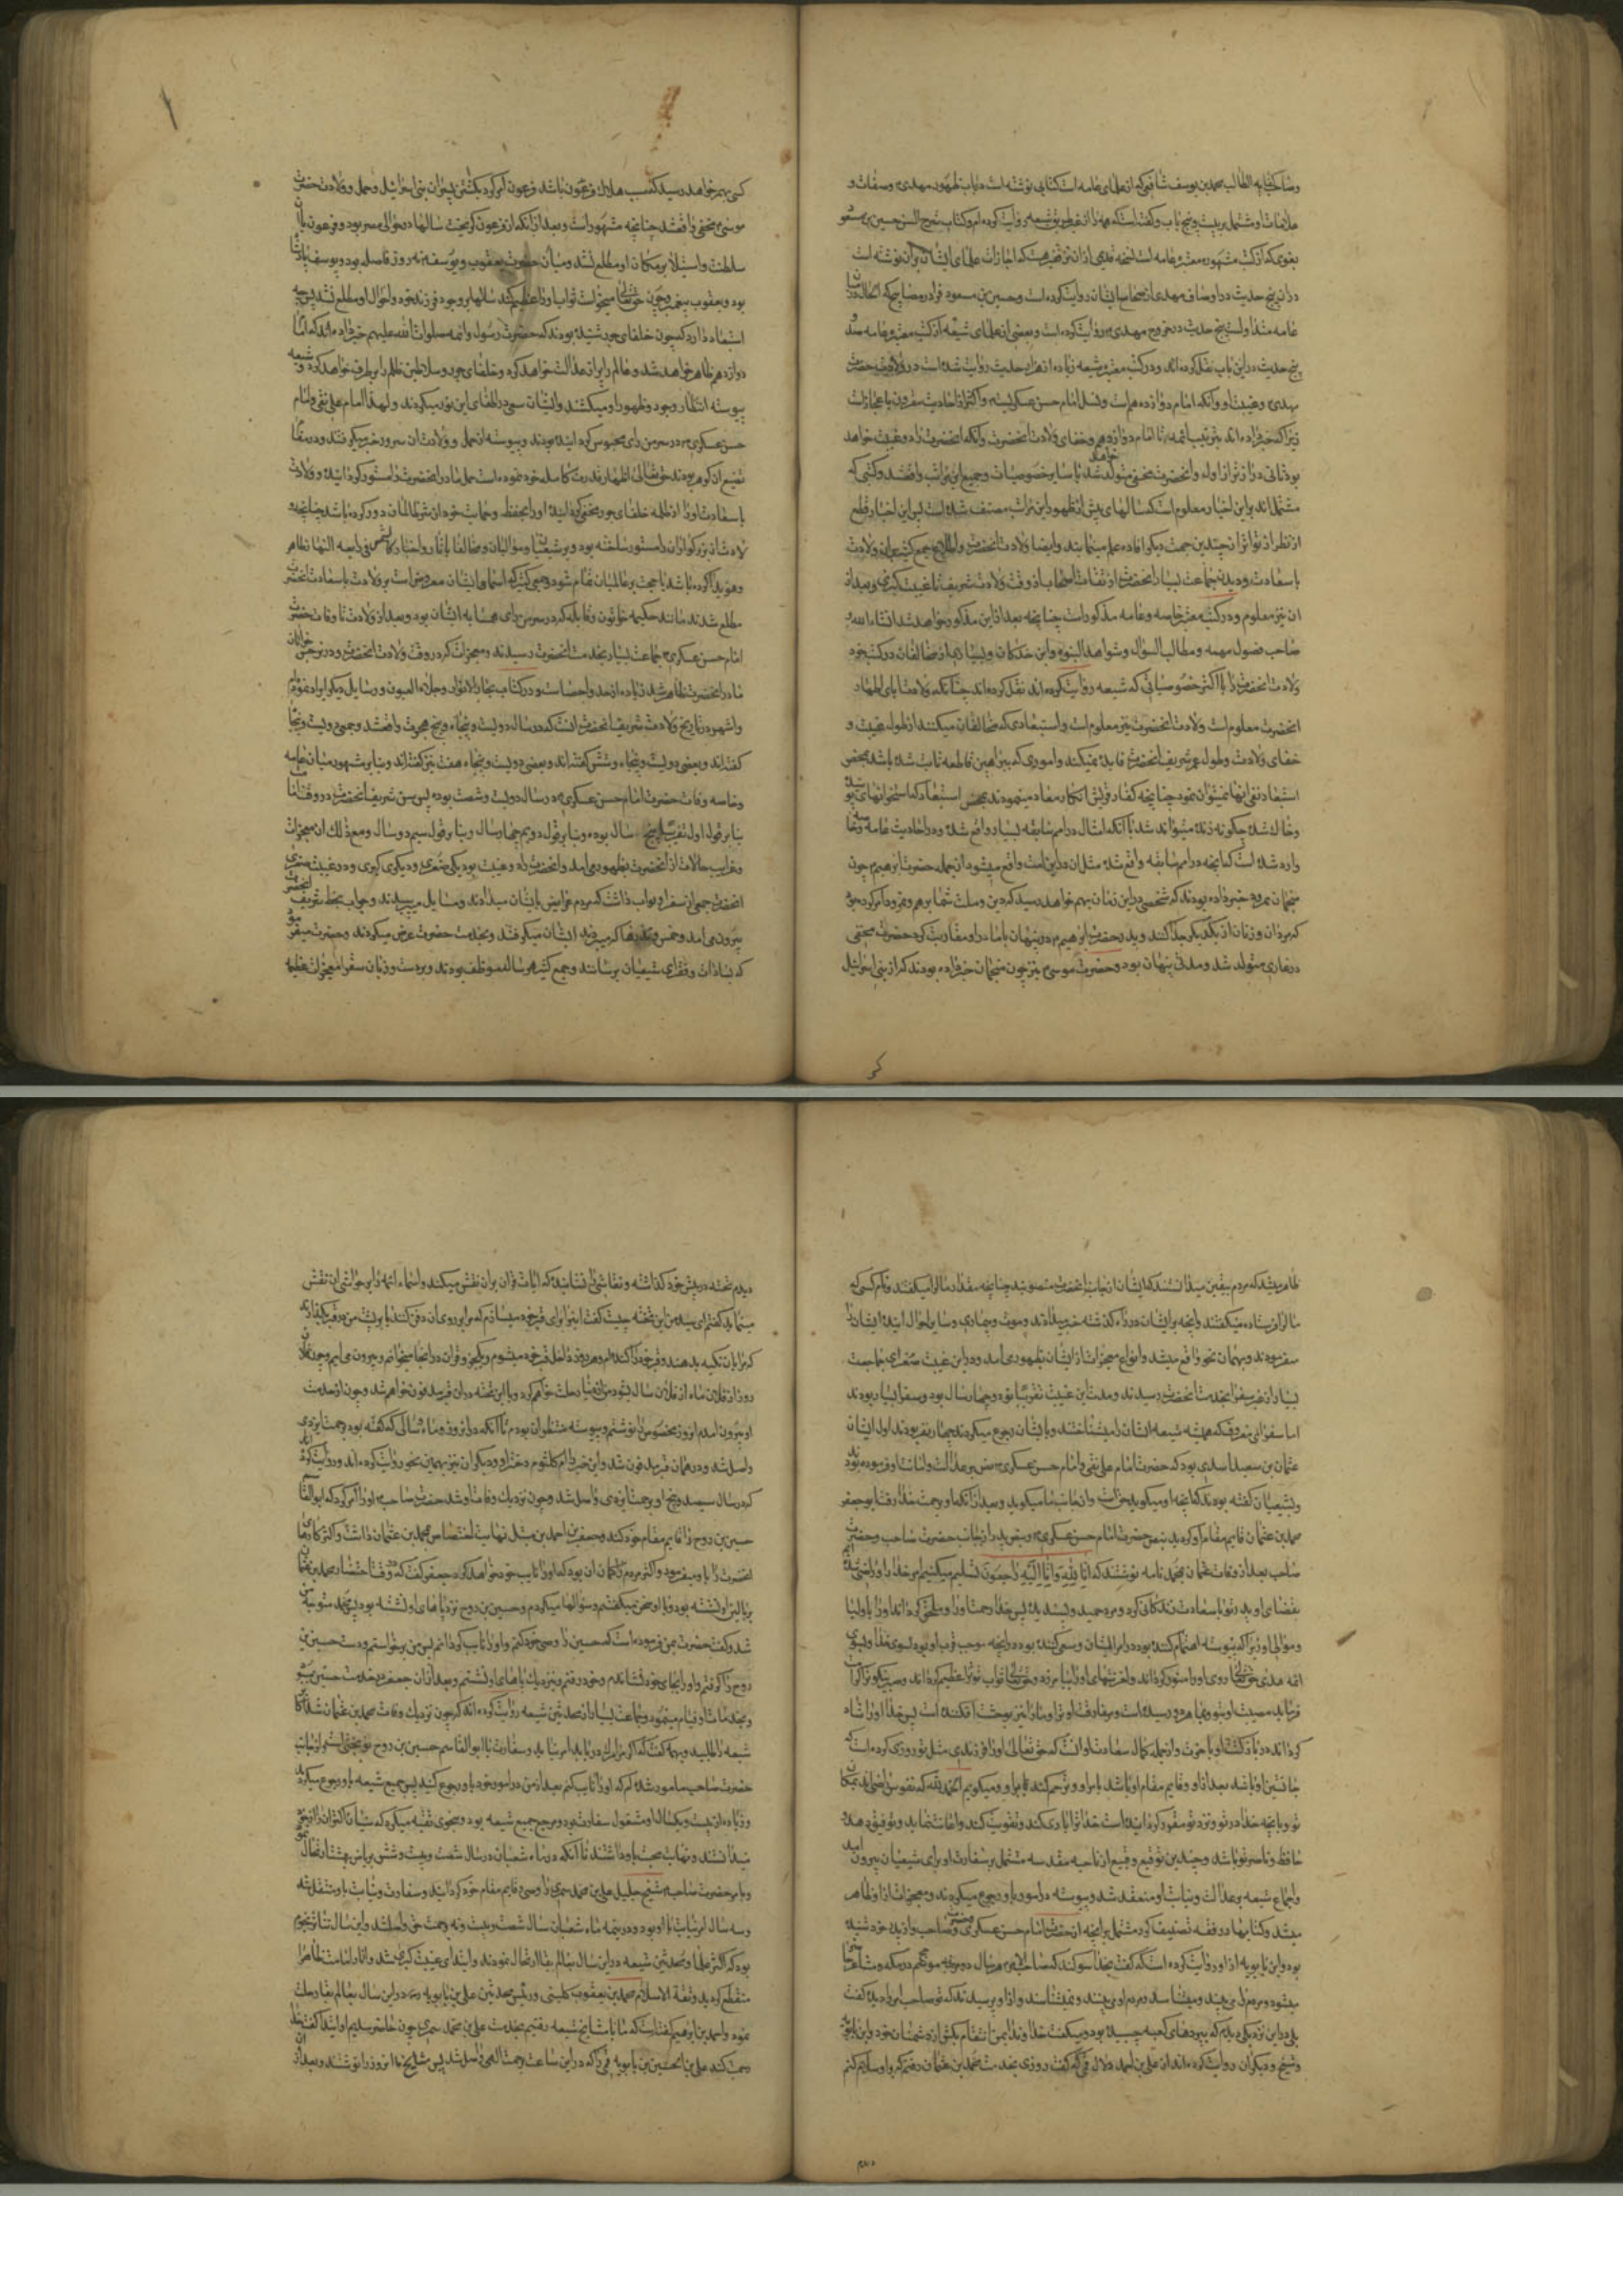 وصاحب کفایه الطالب محمد بن یوسف شافعی که از علمای عامه است کتابی نوشته است در باب ظهور مهدی و صفات و
علامات او مشتمل بر بیست و پنج باب و گفته است که همه را از غیر طریق شیعه روایت کرده‌ام و کتاب شرح السنه حسین بن مسعود
بغوی که از کتب مشهوره معتبره عامه است نسخه قدیمی از آن نزد فقیر هست که اجازات علمای ایشان بر آن نوشته است
در آن پنج حدیث در اوصاف مهدی از صحاح ایشان روایت کرده است و حسین بن مسعود فرا در مصابیح که الحال در میان
عامه متداولست پنج حدیث در خروج مهدی روایت کرده است و بعضی از علمای شیعه از کتب معتبره عامه صد و
پنج حدیث در این باب نقل کرده‌اند و در کتب معتبره شیعه زیاده از هزار حدیث روایت شده است در ولادت حضرت
مهدی و غیبت او و آنکه امام دوازدهم است و نسل امام حسن عسکریست و اکثر آن احادیث مقرون باعجاز است
زیرا که خبر داده‌اند بترتیب ائمه تا امام دوازدهم و خفای ولادت آنحضرت و آنکه آنحضرت را دو غیبت خواهد
بود ثانی درازتر از اول و آنحضرت مخفی متولد خواهد شد با سایر خصوصیات و جمیع این مراتب واقع شد و کتبی که
مشتمل‌اند بر این اخبار معلوم است که سالهای پیش از ظهور این مراتب مصنف شده است پس این اخبار قطع
از نظر از تواتر از چندین جهت دیگر افاده علم مینماید و ایضا ولادت آنحضرت و اطلاع جمع کثیر بر آن ولادت
با سعادت و دیدن جماعت بسیار آنحضرت را از ثقات اصحاب از وقت ولادت شریف تا غیبت کبری و بعد از
آن نیز معلوم و در کتب معتبره خاصه و عامه مذکور است چنانچه بعد از این مذکور خواهد شد انشاء الله و
صاحب فصول مهمه و مطالب السؤل و شواهد النبوه و ابن خلکان و بسیاری از مخالفان در کتب خود
ولادت آنحضرت را با اکثر خصوصیاتی که شیعه روایت کرده‌اند نقل کرده‌اند چنانکه ولادت آبای اطهار
آنحضرت معلوم است ولادت آنحضرت نیز معلوم است و استبعادی که مخالفان میکنند از طول غیبت و
خفای ولادت و طول عمر شریف آنحضرت فایده نمیکند و اموری که ببراهین قاطعه ثابت شده باشد بمحض
استبعاد نفی آنها نمیتوان نمود چنانچه کفار قریش انکار معاد مینمودند بمحض استبعاد که استخوانهای پوسیده
و خاک شده چگونه زنده میتواند شد با آنکه امثال در امم سابقه بسیار واقع شده و در احادیث عامه و خاصه
وارد شده است که آنچه در امم سابقه واقع شده مثل آن در این امت واقع میشود از جمله حضرت ابراهیم چون
منجمان نمرود خبر داده بودند که شخصی در این زمان بهم خواهد رسید که دین و ملت شما برهم زند نمرود امر کرده بود
که مردان و زنان از یکدیگر جدا کنند و پدر حضرت ابراهیم در پنهان با مادر او مقاربت کرد حضرت مخفی
در غاری متولد شد و مدتی پنهان بود و حضرت موسی نیز چون منجمان خبر داده بودند که از بنی اسرائیل
کسی بهم خواهد رسید که سبب هلاک فرعون باشد فرعون امر کرد بکشتن پسران بنی اسرائیل و حمل و ولادت حضرت
موسی مخفی واقع شد چنانچه مشهور است و بعد از آنکه از فرعون گریخت سالها در حوالی مصر بود و فرعون با آن
سلطنت و استیلا بر مکان او مطلع نشد و میان حضرت یعقوب و یوسف نه روز فاصله بود و یوسف پادشاه
بود و یعقوب پیغمبر و چون حقتعالی میخواست ثواب او را عظیم کند سالها بر وجود فرزند خود و احوال او مطلع نشد پس چه
استبعاد دارد که چون خلفای جور شنیده بودند که حضرت رسول و ائمه صلوات الله علیهم خبر داده‌اند که امام
دوازدهم ظاهر خواهد شد و عالم را پر از عدالت خواهد کرد و خلفای جور و سلاطین ظالم را بر طرف خواهد کرد و شیعه
پیوسته انتظار وجود و ظهور او میکشند و ایشان سعی در اطفای این نور میکردند و لهذا امام علی نقی و امام
حسن عسکری در سر من رای محبوس کرده بودند و پیوسته از حمل و ولادت آن سرور خبر میگرفتند و در مقام
تضییع آن گوهر بودند حقتعالی اظهار قدرت کامله خود نموده است حمل مادر آنحضرت را مستور گردانیده و ولادت
با سعادت او را از ظلمه خلفای جور مخفی گردانیده او را بحفظ و حمایت خود از شر ظالمان دور کرده باشد چنانچه و
لادت آن بزرگواران را مستور ساخته بود و بر شیعیان و موالیان و مخالف باثار و اخبار کالشمس فی رابعه النهار ظاهر
و هویدا کرده باشد تا حجت بر عالمیان تمام شود و جمعی کثیر که اسمای ایشان معروف است بر ولادت با سعادت آنحضرت
مطلع شدند مانند حکیمه خاتون و قابله که در سر من رای همسایه ایشان بود و بعد از ولادت تا وفات حضرت
امام حسن عسکری جماعت بسیار بخدمت آنحضرت رسیدند و معجزات که در وقت ولادت آنحضرت و در نرجس خاتون
مادر آنحضرت ظاهر شد زیاده از حد و احصا است و در کتاب بحار الانوار و جلاء العیون و رسایل دیگر ایراد نموده‌ام
و اشهر در تاریخ ولادت شریف آنحضرت آنست که در سال دویست و پنجاه و پنج هجرت واقع شد و جمعی دویست و پنجاه
گفته‌اند و بعضی دویست و پنجاه و شش گفته‌اند و بعضی دویست و پنجاه هفت نیز گفته‌اند و بنابر مشهور میان عامه
و خاصه وفات حضرت امام حسن عسکری در سال دویست و شصت بوده پس سن شریف آنحضرت در وقت امامت
بنا بر قول اول تقریبا پنج سال بوده و بنا بر قول دویم چهار سال و بنا بر قول سیم دو سال و مع ذلک ان معجزات
و غرایب حالات از آنحضرت بظهور می‌آمد و آنحضرت را دو غیبت بود یکی صغری و دیگری کبری و در غیبت صغری
آنحضرت جمعی از سفرا و نواب داشت که مردم عرایض بایشان میدادند و مسایل میپرسیدند و جواب بخط شریف آنحضرت
بیرون می‌آمد و خمس و نذرها که میبردند ایشان میگرفتند و بخدمت حضرت عرض میکردند و حضرت میفرمود
که بسادات و فقرای شیعیان برسانند و جمع کثیر هر ساله موظف بودند و بر دست و زبان سفرا معجزات عظیمه
ظاهر میشد که مردم بیقین میدانستند که ایشان از جانب آنحضرت منصوبند چنانچه مقدار مال را میگفتند و نام کسی که
مال را فرستاده میگفتند و آنچه بر ایشان در راه گذشته خبر میدادند و موت و بیماری و سایر احوال آینده ایشان را
میفرمودند و بهمان نحو واقع میشد و انواع معجزات از ایشان بظهور می‌آمد و در این غیبت صغری جماعت
بسیار از غیر سفرا بخدمت آنحضرت رسیدند و مدت این غیبت تقریبا هفتاد و چهار سال بود و سفرا بسیار بودند
اما سفرای معروف که همیشه شیعه ایشان را میشناختند و بایشان رجوع میکردند چهار نفر بودند اول ایشان
عثمان بن سعید اسدی بود که حضرت امام علی نقی و امام حسن عسکری نص بر عدالت و امانت او فرموده بودند
و بشیعیان گفته بودند که آنچه او میگوید حق است و از جانب ما میگوید و بعد از آنکه او برحمت خدا رفت ابو جعفر
محمد بن عثمان قایم مقام او گردید بنص حضرت امام حسن عسکری و بنص پدر از جانب حضرت صاحب و حضرت
صاحب بعد از وفات عثمان بمحمد نامه نوشتند که انا لله و انا الیه راجعون تسلیم میکنیم امر خدا را و راضی شده‌ایم
بقضای او پدر تو با سعادت زندگانی کرد و مرد حمید و پسندیده پس خدا رحمت کند او را و ملحق گرداند او را باولیا
و موالی او زیرا که پیوسته اهتمام کننده بود در امر ایشان و سعی کننده بود در آنچه موجب قرب او بود بسوی خدا و بسوی
ائمه هدی حقتعالی روی او را منور گرداند و لغزشهای او را بیامرزد و حقتعالی ثواب ترا عظیم گرداند و صبر نیکو ترا کرامت
فرماید مصیبت او بتو و بما هر دو رسیده است و مفارقت او ترا و ما را نیز بوحشت افکنده است پس خدا او را شاد
گرداند در بازگشت او بآخرت و از جمله کمال سعادت او آنست که حق تعالی او را فرزندی مثل تو روزی کرده است که
جانشین او باشد بعد از او و قایم مقام او باشد بامر او و ترحم کند برای او و میگویم الحمد لله که نفوس راضی‌اند بمکان
تو و بآنچه خدا در تو و نزد تو مقرر گردانیده است خدا ترا یاری کند و تقویت کند و اعانت نماید و توفیق دهد و
حافظ و ناصر تو باشد و چندین توقیع رفیع از ناحیه مقدسه مشتمل بر سفارت او برای شیعیان بیرون آمد
و اجماع شیعه بر عدالت و نیابت او منعقد شد و پیوسته در امور باو رجوع میکردند و معجزات از او ظاهر
میشد و کتابها در فقه تصنیف کرد مشتمل بر آنچه از حضرت امام حسن عسکری و حضرت صاحب و از پدر خود شنیده
بود و ابن بابویه از او روایت کرده است که گفت بخدا سوگند که صاحب الامر هر سال در موسم در مکه و مشاعر حاضر
میشود و مردم را می‌بیند و میشناسد و مردم او را می‌بینند و نمیشناسند و از او پرسیدند که تو صاحب امر را دیده‌ای گفت
بلی در این نزدیکی دیدم که بپرده‌های کعبه چسبیده بود و میگفت خداوندا بمن انتقام بکش از دشمنان خود و ابن بابویه
و شیخ و دیگران روایت کرده‌اند از علی بن احمد دلال قمی که گفت روزی بخدمت محمد بن عثمان رفتم که بر او سلام کنم
دیدم تخته در پیش خود گذاشته و نقاشی را نشانیده که آیات قرآن بر آن نقش میکند و اسماء ائمه را بر حواشی آن نقش
مینماید گفتم ای سید من این تخته چیست گفت اینرا برای قبر خود میسازم که مرا بر روی آن دفن کنند یا پشت من در قبر گذارند
که مرا بآن تکیه بدهند و قبر خود را کنده‌ام و هر روز داخل قبر خود میشوم و یک جزو قرآن در آنجا میخوانم و بیرون می‌آیم و چون فلان
روز از فلان ماه از فلان سال شود من از دنیا رحلت خواهم کرد و با این تخته در آن قبر مدفون خواهم شد و چون از خدمت
او بیرون آمدم آن روز مخصوص را نوشتم و پیوسته منتظر آن بودم تا آنکه در آن روز و ماه و سالی که گفته بود برحمت ایزدی
واصل شد و در همان قبر مدفون شد و این خبر را ام کلثوم دختر او و دیگران نیز بهمین نحو روایت کرده‌اند و روایت کرده‌اند
که در سال سیصد و پنج او برحمت ایزدی واصل شد و چون نزدیک وفات او شد حضرت صاحب او را امر کرد که ابوالقاسم
حسین بن روح را قایم مقام خود کند و جعفر بن احمد بن متیل نهایت اختصاص بمحمد بن عثمان داشت و اکثر کارهای
آنحضرت را باو میفرمود و اکثر مردم را گمان آن بود که او را نایب خود خواهد کرد جعفر گفت که در وقت احتضار محمد بن عثمان
بر بالین او نشسته بودم و با او سخن میگفتم و سؤالها میکردم و حسین بن روح نزد پاهای او نشسته بود پس محمد متوجه من
شد و گفت حضرت بمن فرموده است که حسین را وصی خود کنم و او را نایب گردانم پس من برخواستم و دست حسین بن
روح را گرفتم و او را بجای خود نشاندم و خود رفتم و نزدیک پاهای او نشستم و بعد از آن جعفر در خدمت حسین میبود
و بخدمات او قیام مینمود و جماعت بسیار از محدثین شیعه روایت کرده‌اند که چون نزدیک وفات محمد بن عثمان شد اکابر
شیعه را طلبید و بهمه گفت که اگر مرا مرگ دریابد امر نیابت و سفارت با ابوالقاسم حسین بن روح نوبختی است و از جانب
حضرت صاحب مامور شده‌ام که او را نایب کنم بعد از من در امور خود باو رجوع کنید پس جمیع شیعه باو رجوع میکردند
و زیاده از بیست و یکسال او مشغول سفارت بود و مرجع جمیع شیعه بود و بنحوی تقیه میکرد که سنیان اکثر او را از خود
میدانستند و نهایت محبت باو داشتند تا آنکه در ماه شعبان در سال سیصد و بیست و شش بریاض بهشت ارتحال نمود
و بامر حضرت صاحب شیخ جلیل علی بن محمد سمری را وصی و قایم مقام خود گردانید و سفارت و نیابت باو منتقل شد
و سه سال امر نیابت با او بود و در نیمه ماه شعبان سال سیصد و بیست و نه برحمت حق واصل شد و این سال تناثر نجوم
بود که اکثر علما و محدثین شیعه در این سال بعالم بقا ارتحال نمودند و ابتدای غیبت کبری شد و آثار امامت ظاهرا
منقطع گردید و ثقة الاسلام محمد بن یعقوب کلینی و رئیس محدثین علی بن بابویه در این سال بعالم بقا رحلت
نمود و احمد بن ابراهیم گفته است که ما با مشایخ شیعه رفتیم بخدمت علی بن محمد سمری چون حاضر شدیم او ابتدا گفت خدا
رحمت کند علی بن الحسین بن بابویه قمی را که در این ساعت برحمت الهی واصل شد پس مشایخ ما آن روز را نوشتند و بعد از آن